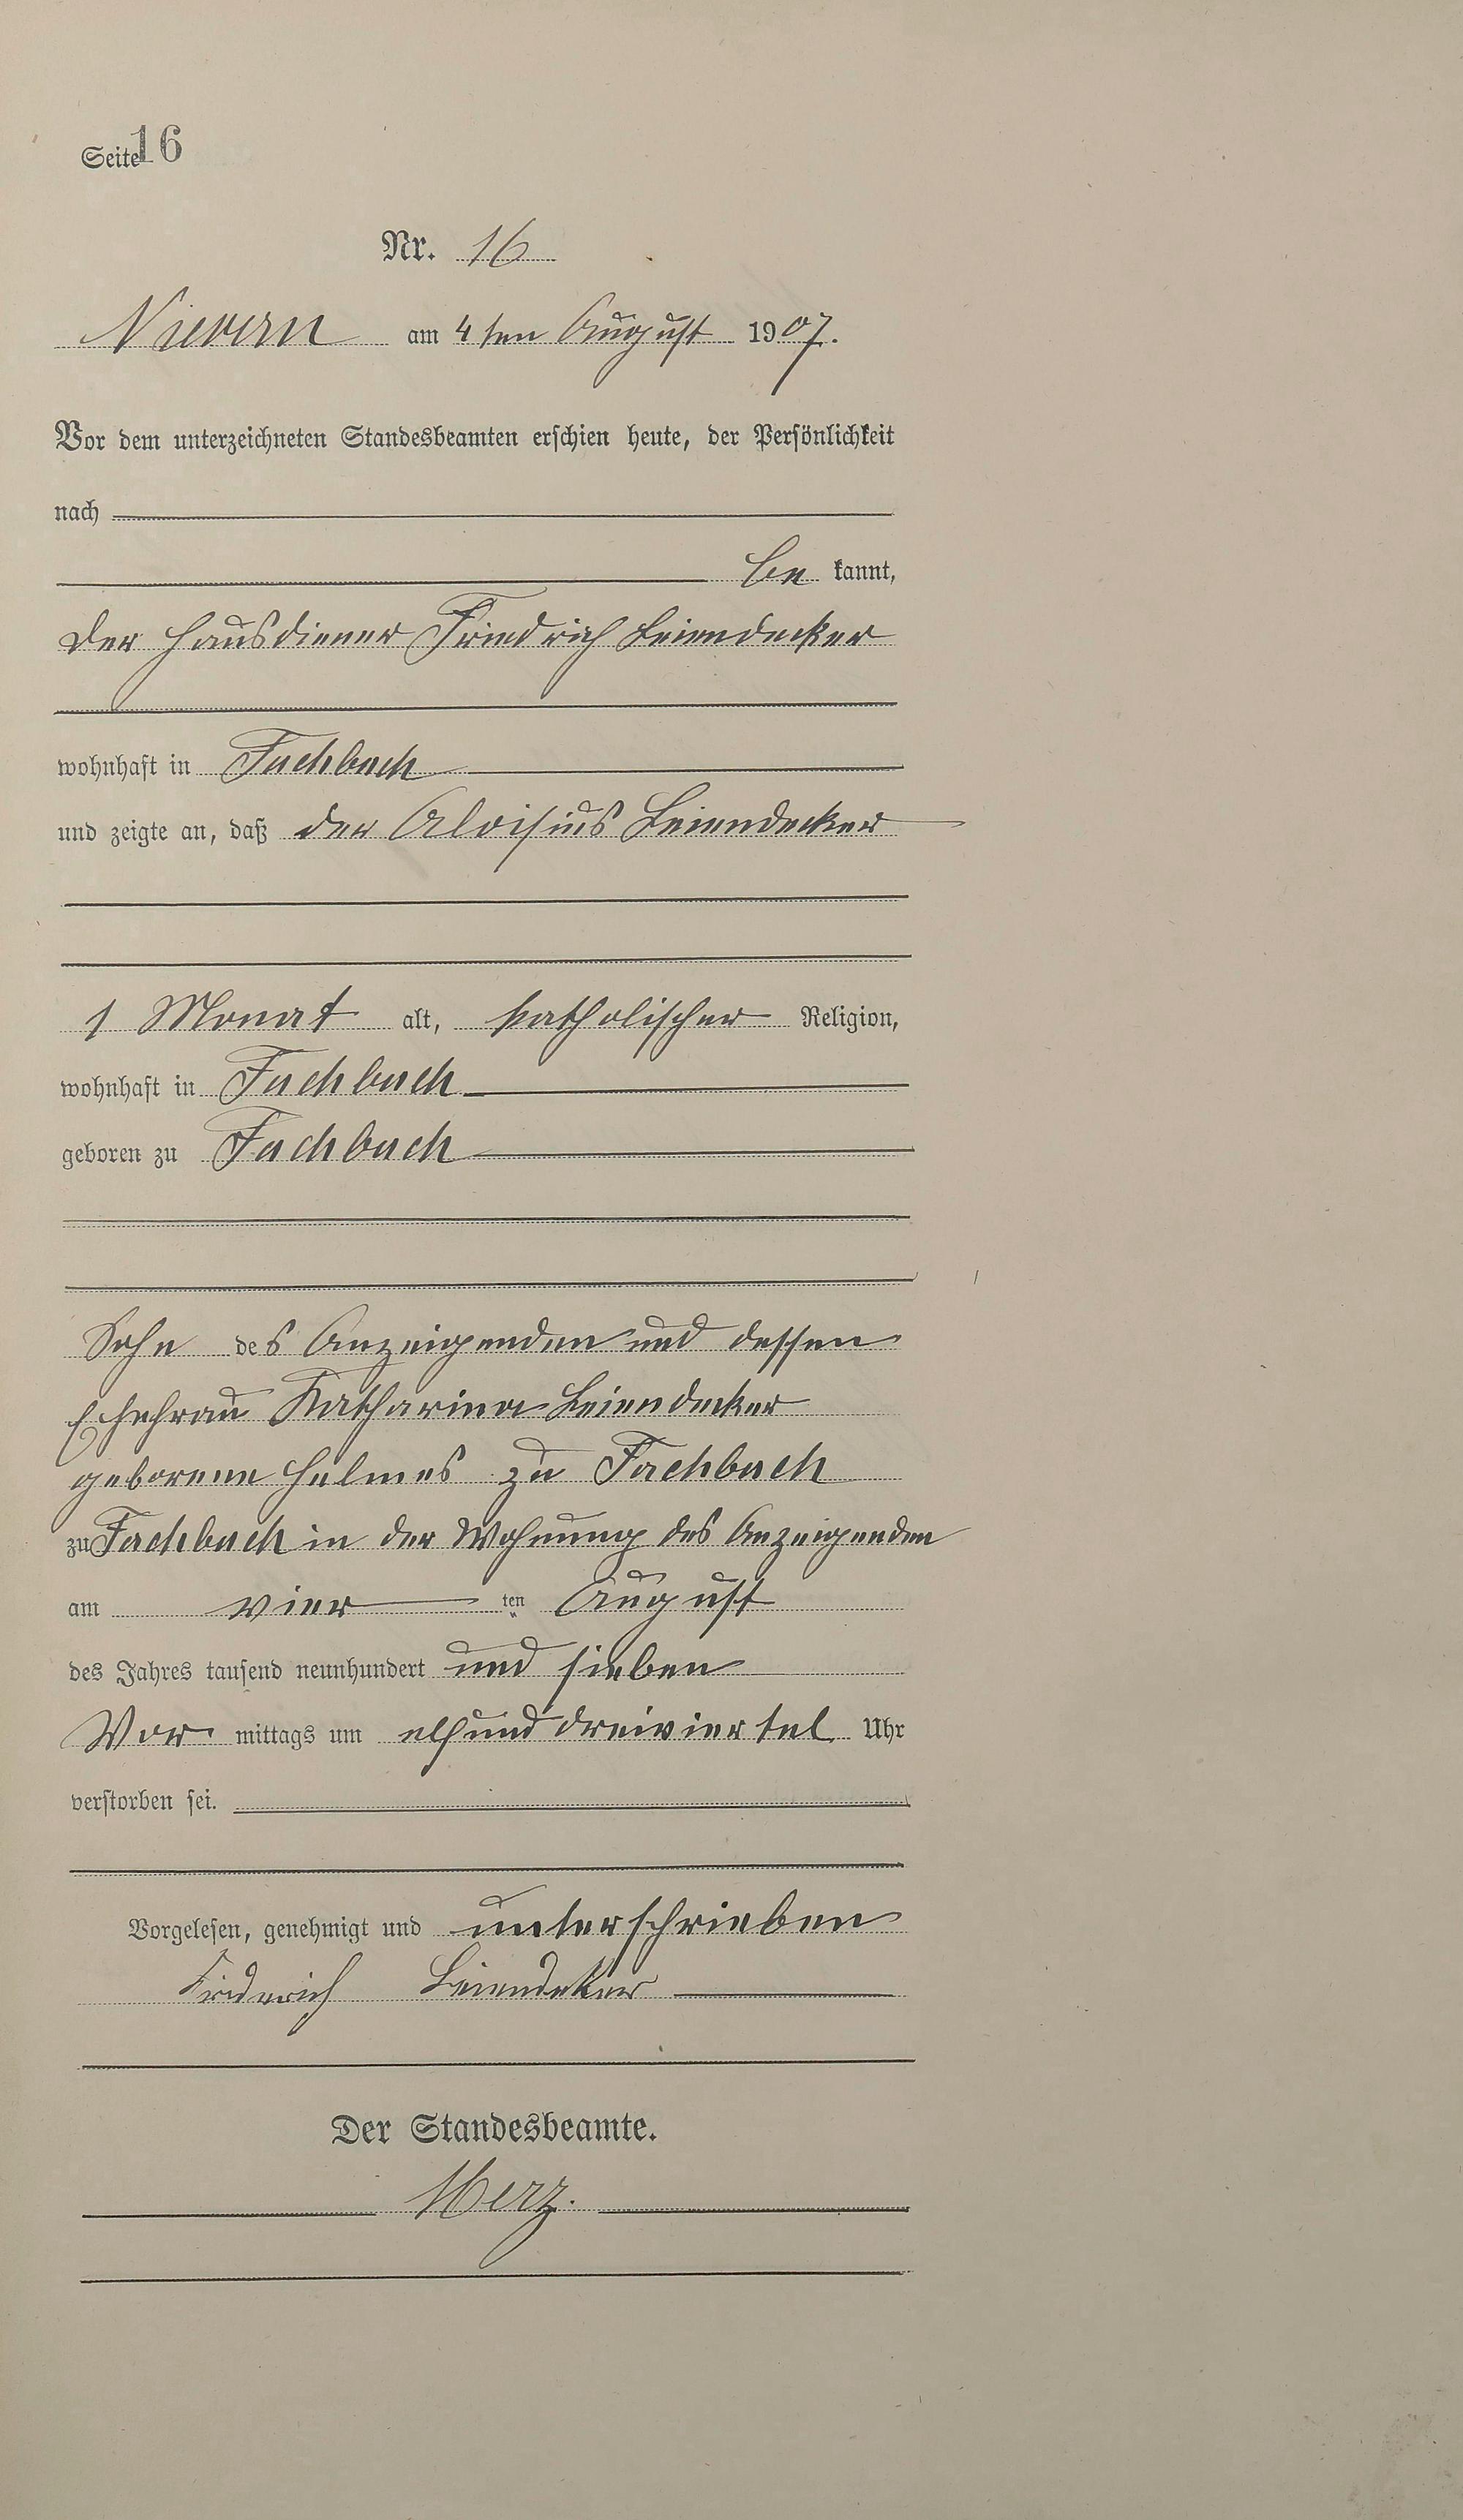 Seite 16
Nr. 16
Nievern am 4ten August 1907.
Vor dem unterzeichneten Standesbeamten erschien heute, der Persönlichkeit
nach
be kannt,
der Hausdiener Friedrich Leiendecker
wohnhaft in Fachbach
und zeigte an, daß der Aloisius Leiendecker
1 Monat alt, katholischer Religion,
wohnhaft in Fachbach
geboren zu Fachbach
Sohn des Anzeigenden und dessen
Ehefrau Katharina Leiendecker
geborene Helmes zu Fachbach
zu Fachbach in der Wohnung des Anzeigenden
am vier ten August
des Jahres tausend neunhundert und sieben
Vor mittags um elf und dreiviertel Uhr
verstorben sei.
Vorgelesen, genehmigt und unterschrieben
Friderich Leiendeker
Der Standesbeamte.
Merz.